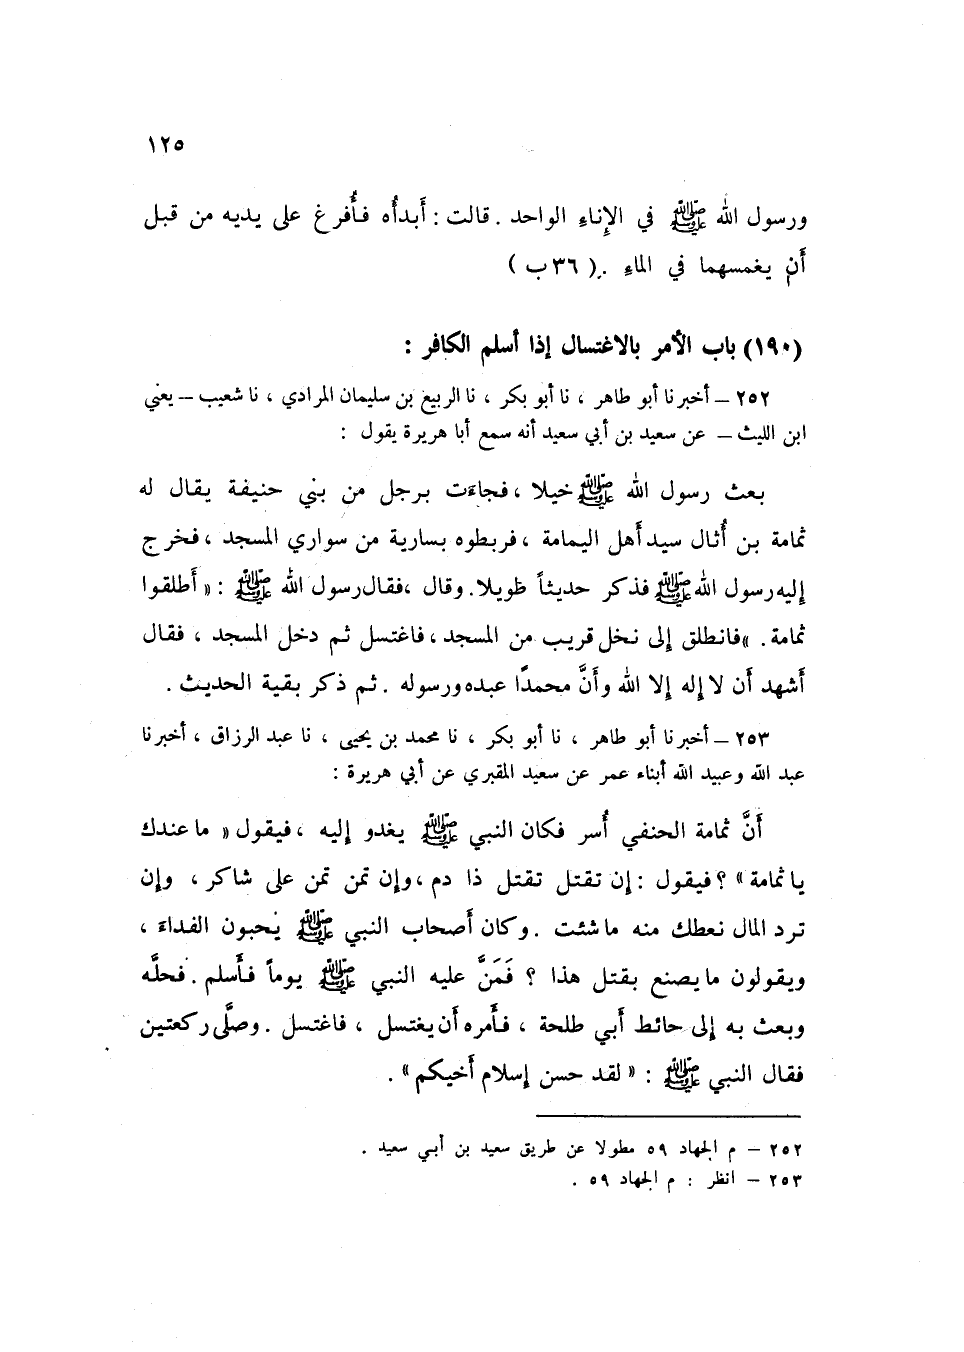 ١٢٥
ورسول الله ﷺ في الإناء الواحد . قالت : أَبدأُه فأُفرغ على يديه من قبل
أَن يغمسهما في الماء . ( ٣٦ ب )
(١٩٠) باب الأمر بالاغتسال إذا أسلم الكافر :
٢٥٢ – أخبرنا أبو طاهر ، نا أبو بكر ، نا الربيع بن سليمان المرادي ، نا شعيب – يعني
ابن الليث – عن سعيد بن أبي سعيد أنه سمع أبا هريرة يقول :
بعث رسول الله ﷺ خيلا ، فجاءَت برجل من بني حنيفة يقال له
ثمامة بن أُثال سيد أَهل اليمامة ، فربطوه بسارية من سواري المسجد ، فخرج
إليه رسول الله ﷺ فذكر حديثاً طويلا . وقال ، فقال رسول الله ﷺ : « أَطلقوا
ثمامة . » فانطلق إلى نخل قريب من المسجد ، فاغتسل ثم دخل المسجد ، فقال
أَشهد أَن لا إله إلا الله وأَنَّ محمدًا عبده ورسوله . ثم ذكر بقية الحديث .
٢٥٣ – أخبرنا أبو طاهر ، نا أبو بكر ، نا محمد بن يحيى ، نا عبد الرزاق ، أخبرنا
عبد الله وعبيد الله أبناء عمر عن سعيد المقبري عن أبي هريرة :
أَنَّ ثمامة الحنفي أُسر فكان النبي ﷺ يغدو إليه ، فيقول « ما عندك
يا ثمامة » ؟ فيقول : إن تقتل تقتل ذا دم ، وإن تمن تمن على شاكر ، وإن
ترد المال نعطك منه ما شئت . وكان أَصحاب النبي ﷺ يحبون الفداءَ ،
ويقولون ما يصنع بقتل هذا ؟ فَمَنَّ عليه النبي ﷺ يوماً فأَسلم . فحلَّه
وبعث به إلى حائط أَبي طلحة ، فأَمره أَن يغتسل ، فاغتسل . وصلَّى ركعتين
فقال النبي ﷺ : « لقد حسن إسلام أَخيكم » .
٢٥٢ – م الجهاد ٥٩ مطولا عن طريق سعيد بن أبي سعيد .
٢٥٣ – انظر : م الجهاد ٥٩ .